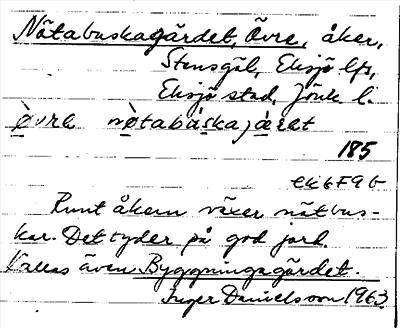 Nötabuskagärdet, Övre, åker,
Stensgöl, Eksjö lfs,
Eksjö stad, Jönk. l.
185
ek 6F9b
Runt åkern växer nötbus-
kar. Det tyder på god jord.
Kallas även Byggningagärdet.
Inger Danielsson 1963